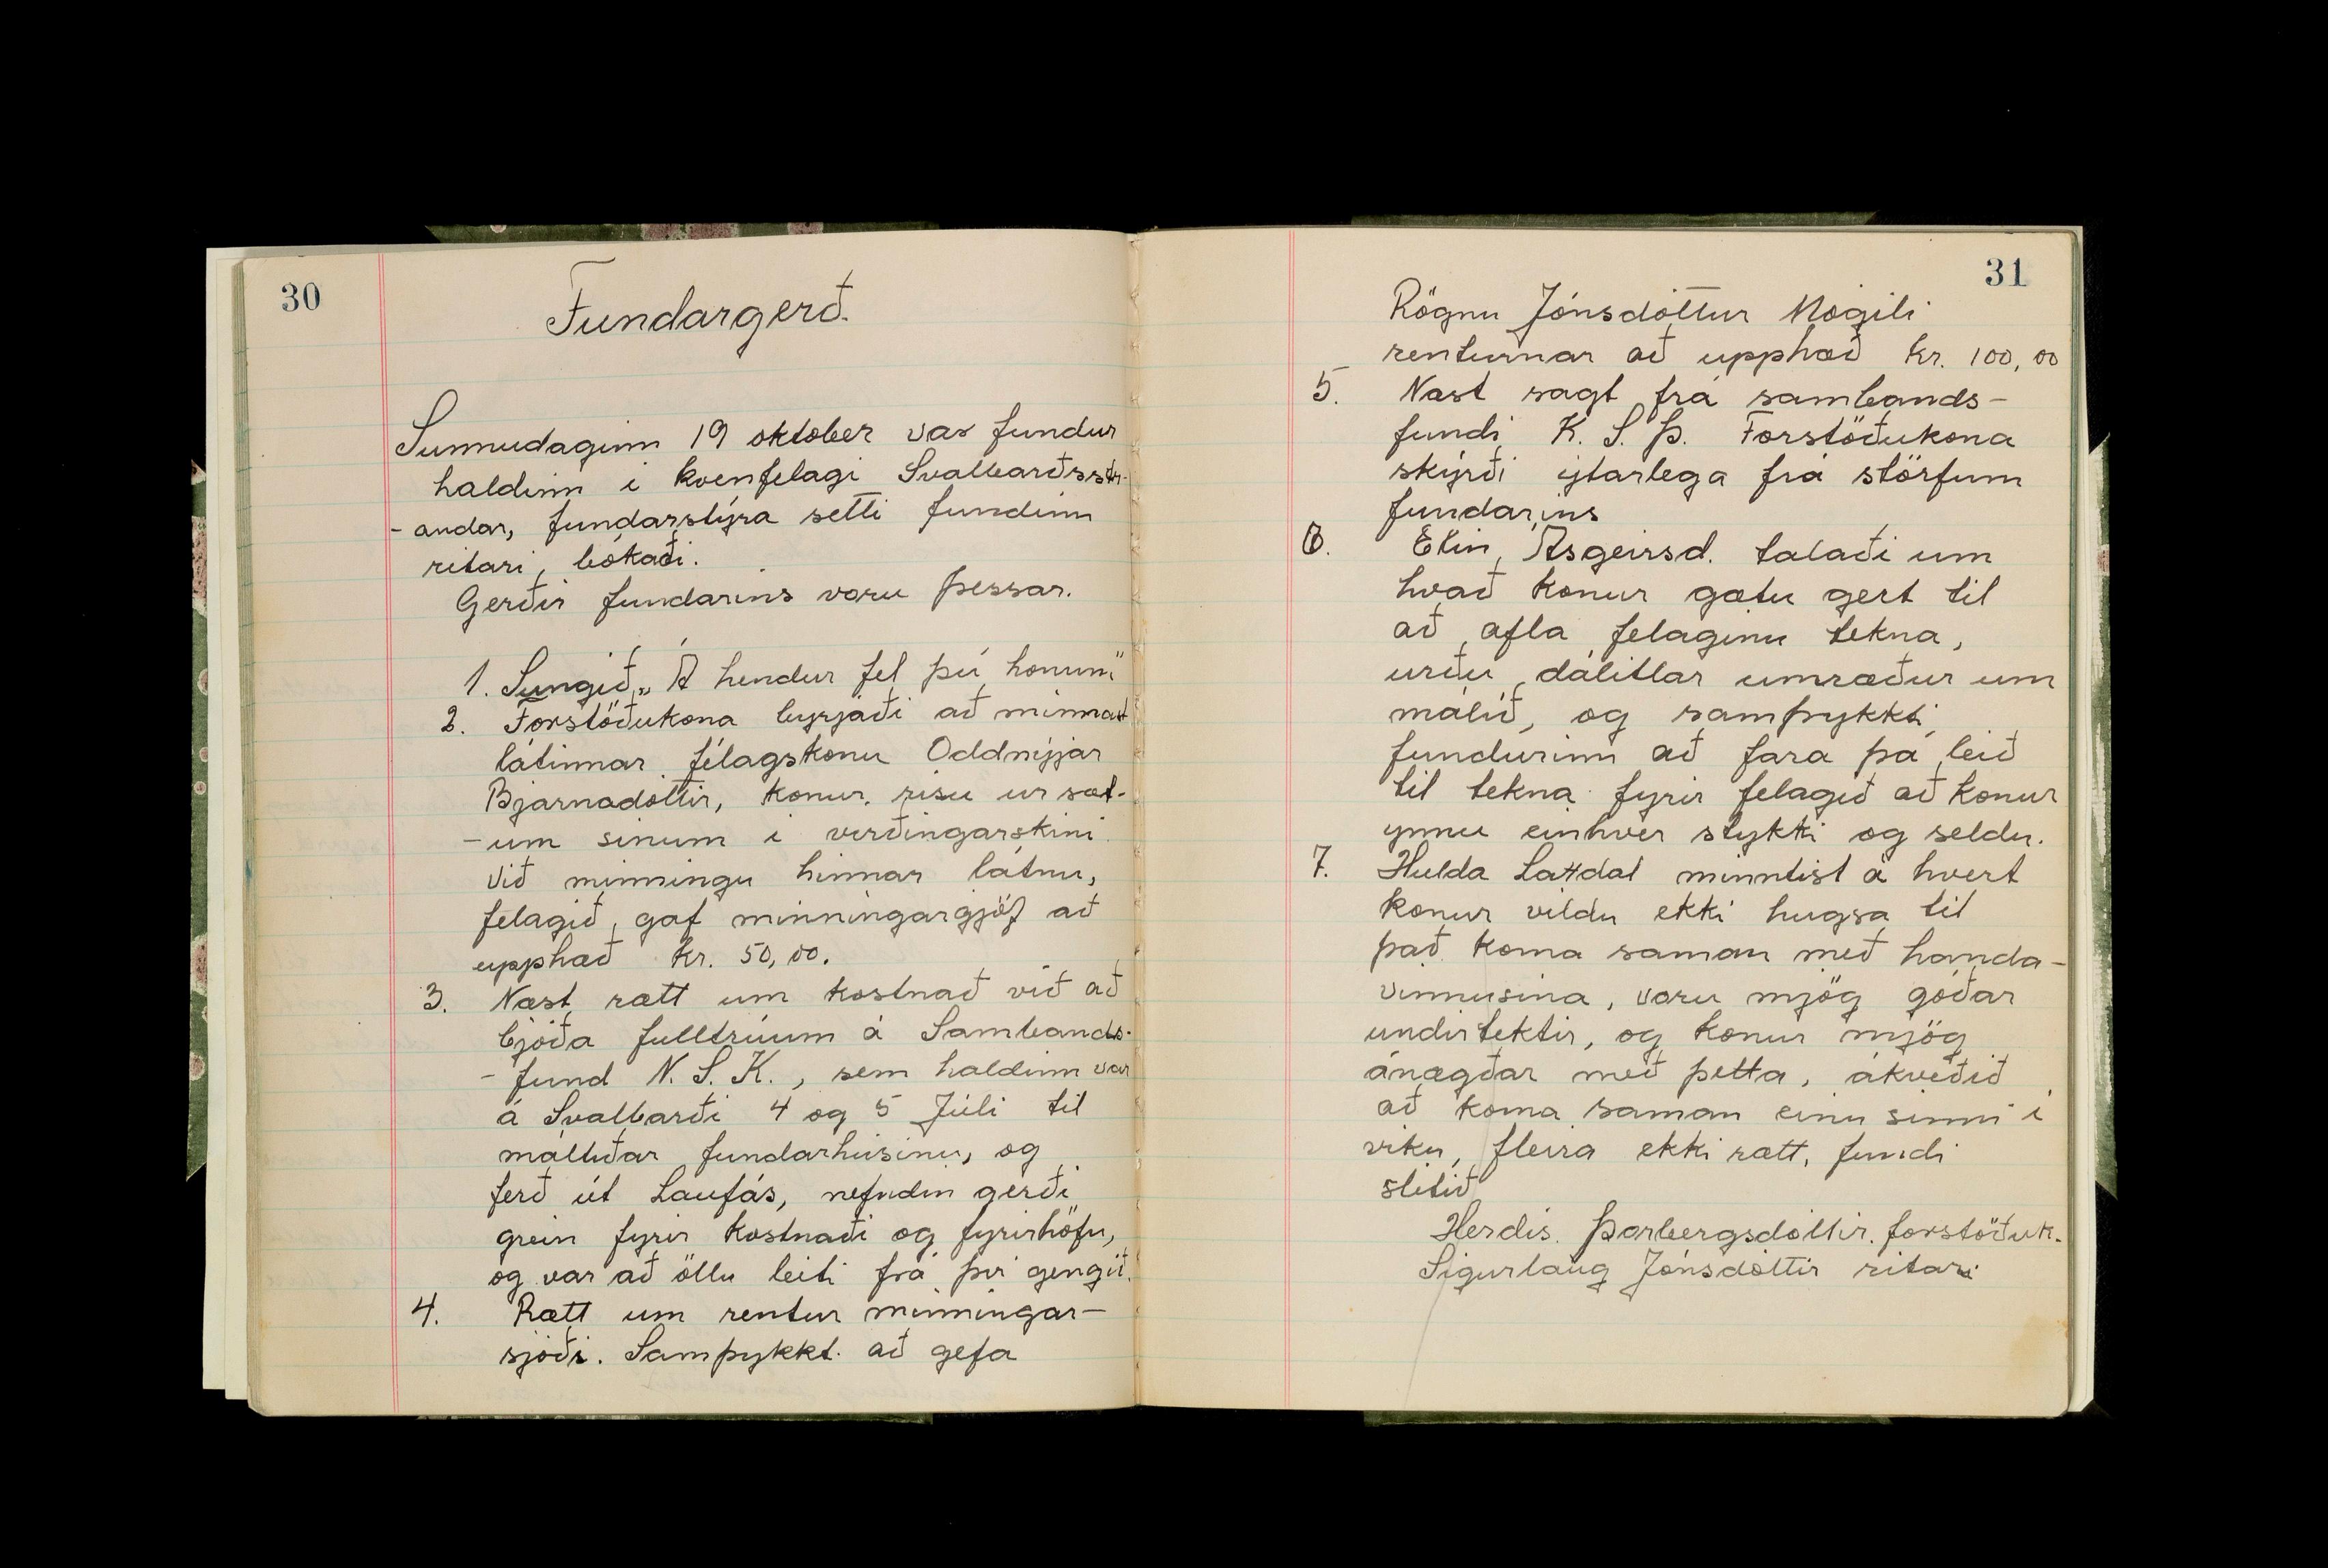 30
Fundargerð.
Sunnudaginn 19 oktober var fundur
haldinn i kvenfelagi Svalbarðsstr-
- andar, fundarstýra setti fundinn
ritari, bókaði.
Gerðir fundarins voru þessar.
1. Sungið „Á hendur fel þú honum"
2. Forstöðukona byrjaði að minnast
látinnar félagskonu Oddnýjar
Bjarnadóttir, konur risu ur sæt-
- um sinum i virðingarskini
við minningu hinnar látnu,
felagið, gaf minningargjöf að
upphæð kr. 50,00.
3. Næst rætt um kostnað við að
bjóða fulltrúum á Sambands-
- fund N. S. K., sem haldinn var
á Svalbarði 4 og 5 Júli til
máltiðar fundarhúsinu, og
ferð út Laufás, nefndin gerði
grein fyrir kostnaði og fyrirhöfn,
og var að öllu leiti frá þvi gengið.
4. Rætt um rentur minningar-
sjóði. Samþykkt að gefa
31
Rögnu Jónsdóttur Mógili
renturnar að upphæð kr. 100,00
5. Næst sagt frá sambands-
fundi K. S. Þ. Forstöðukona
skýrði ýtarlega frá störfum
fundarins
6. Elin Ásgeirsd. talaði um
hvað konur gætu gert til
að afla felaginu tekna,
urðu dálitlar umræður um
málið, og samþykkti
fundurinn að fara þá leið
til tekna fyrir felagið að konur
ynnu einhver stykki og seldu.
7. Hulda Laxdal minntist á hvert
konur vildu ekki hugsa til
það koma saman með handa-
vinnusina, voru mjög góðar
undirtektir, og konur mjög
ánægðar með þetta, ákveðið
að koma saman einu sinni i
viku, fleira ekki rætt, fundi
slitið
Herdis Þorbergsdóttir. forstöðuk.
Sigurlaug Jónsdóttir ritari